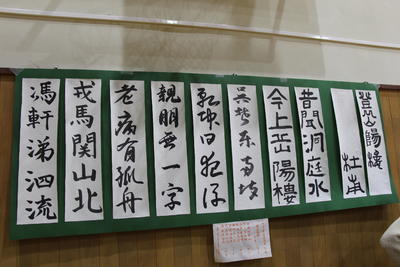 登岳陽楼
杜甫
昔聞洞庭水
今上岳陽楼
呉楚東南坼
乾坤日夜浮
親朋無一字
老病有孤舟
戎馬関山北
馮軒涕泗流